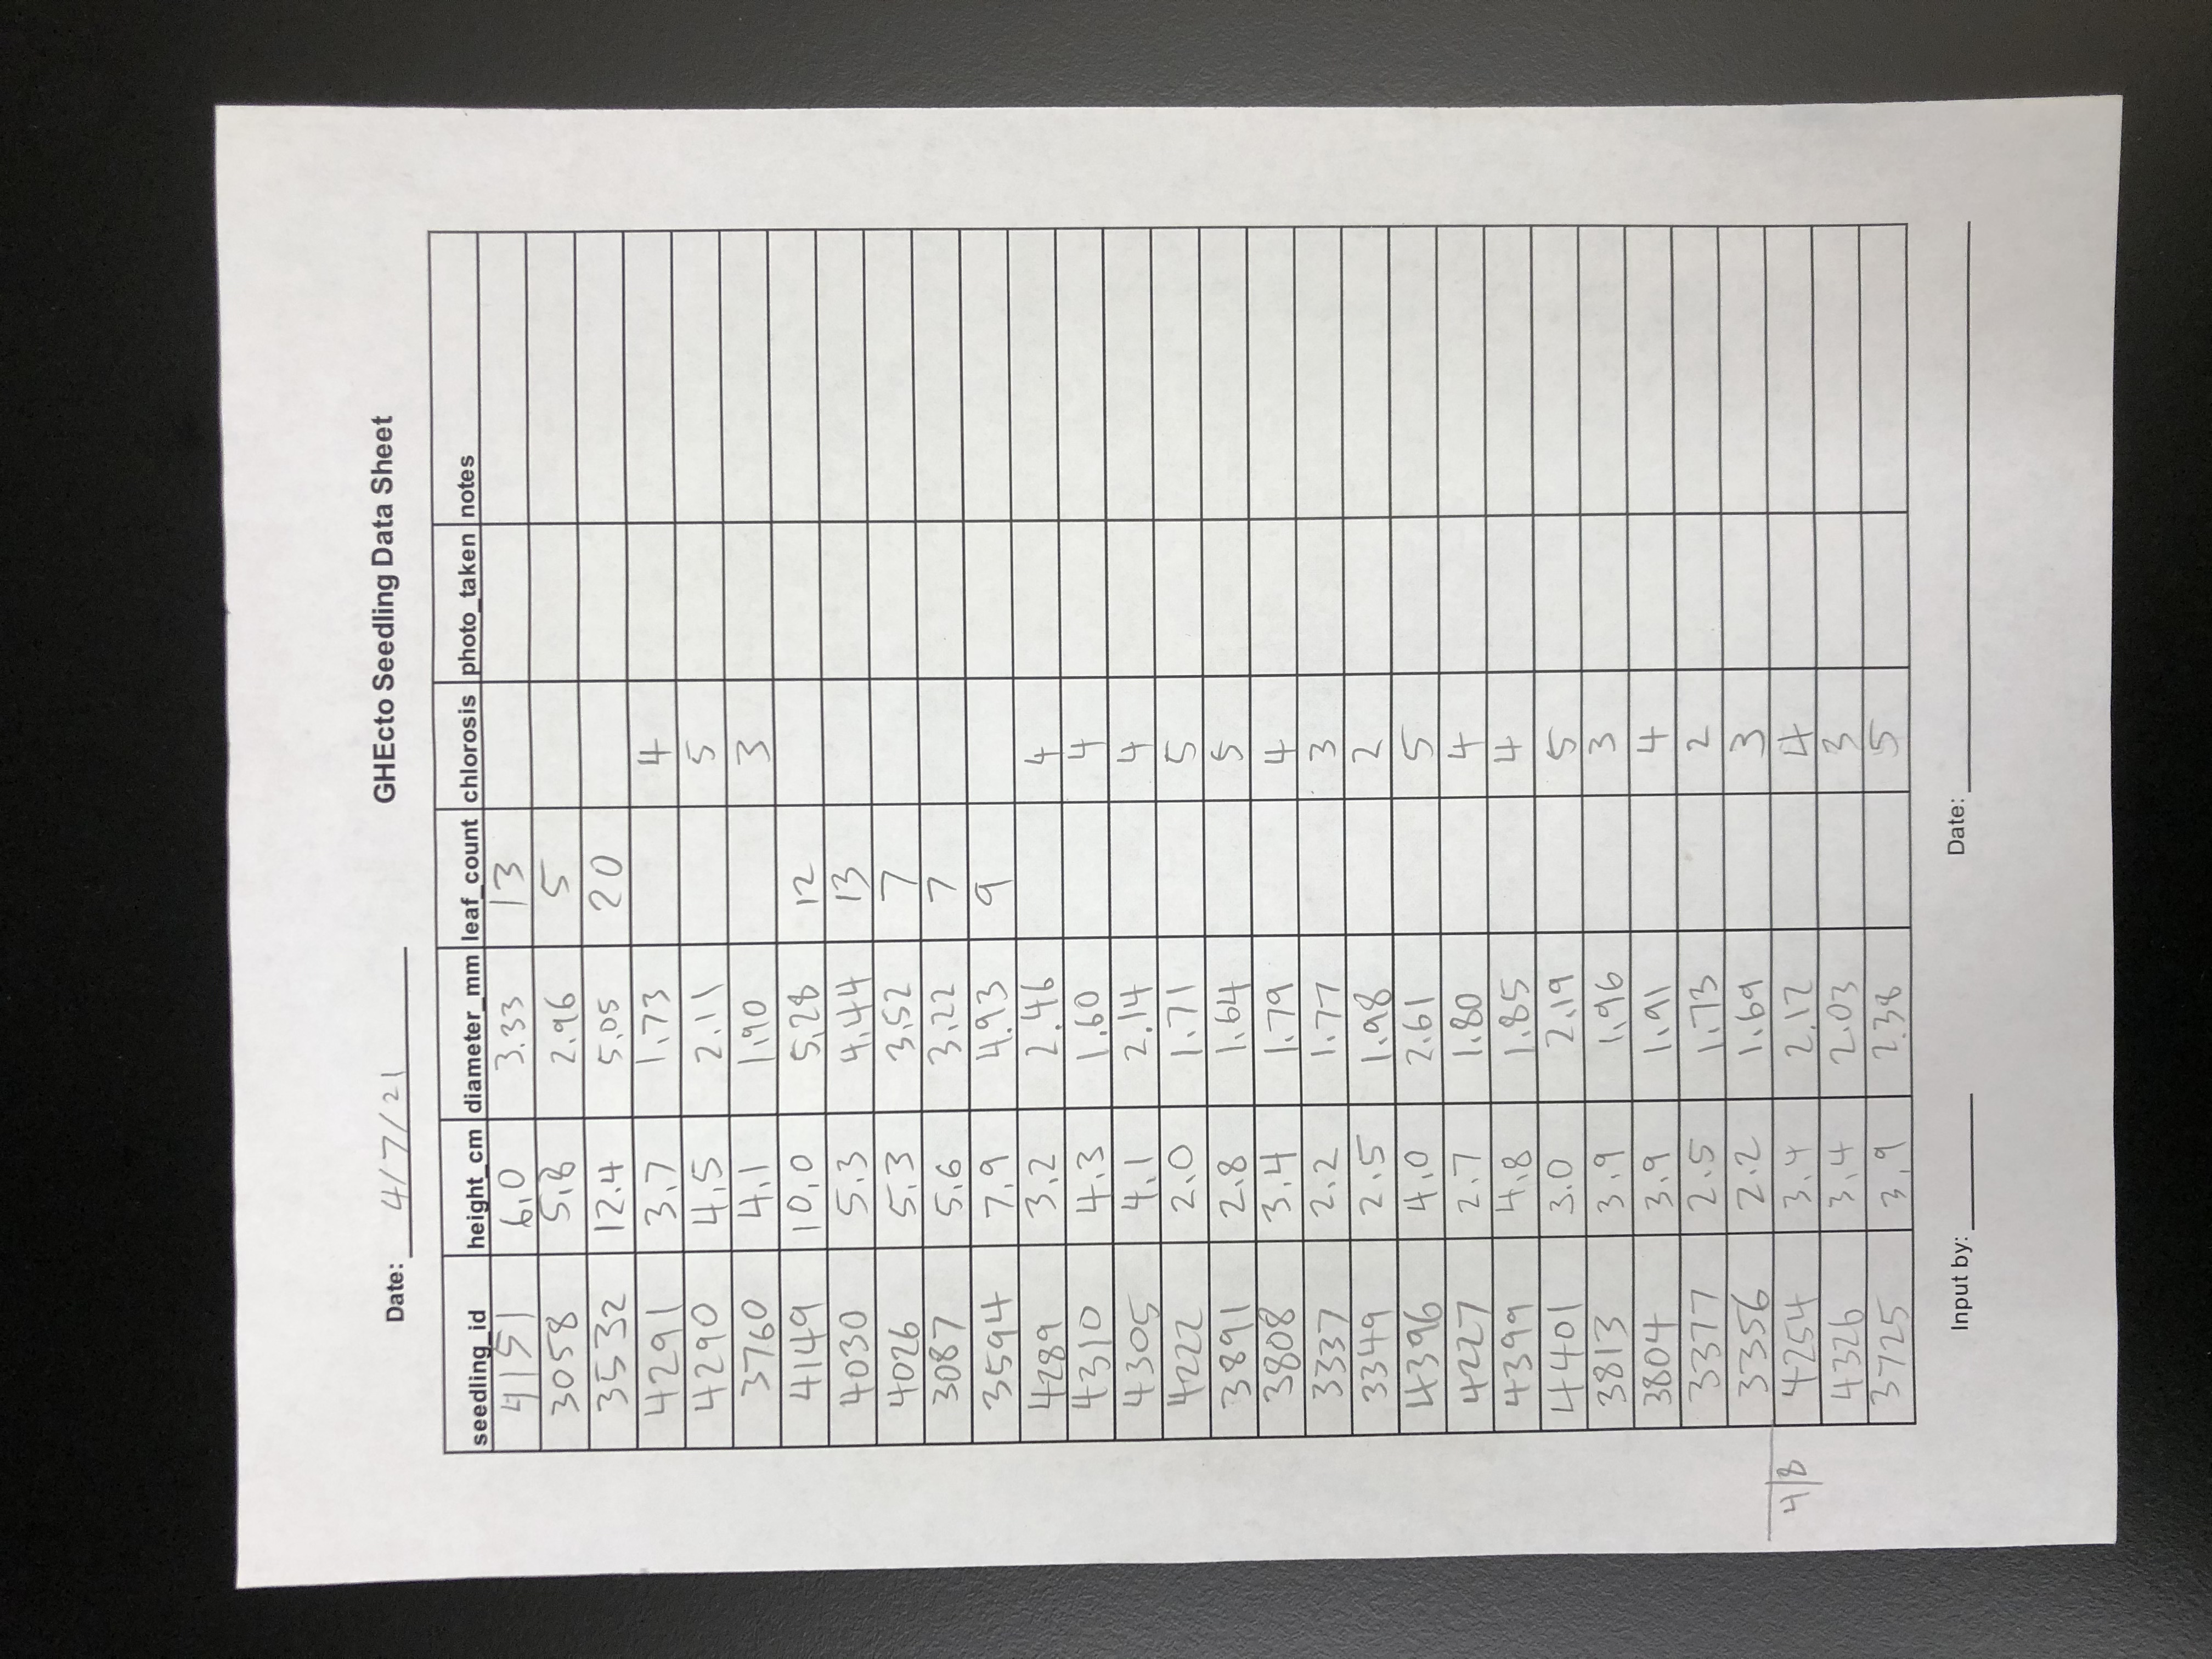 GHEcto Seedling Data Sheet
Date: 4/7/21
seedling_id height_cm diameter_mm leaf_count chlorosis photo_taken notes
4151 6.0 3.33 13
3058 5.8 2.96 5
3532 12.4 5.05 20
4291 3.7 1.73 4
4290 4.5 2.11 5
3760 4.1 1.90 3
4149 10.0 5.28 12
4030 5.3 4.44 13
4026 5.3 3.52 7
3087 5.6 3.22 7
3594 7.9 4.93 9
4289 3.2 2.46 4
4310 4.3 1.60 4
4305 4.1 2.14 4
4222 2.0 1.71 5
3891 2.8 1.64 5
3808 3.4 1.79 4
3337 2.2 1.77 3
3349 2.5 1.98 2
4396 4.0 2.61 5
4227 2.7 1.80 4
4399 4.8 1.85 4
4401 3.0 2.19 5
3813 3.9 1.96 3
3804 3.9 1.91 4
3377 2.5 1.73 2
3356 2.2 1.69 3
4/8 4254 3.4 2.12 4
4326 3.4 2.03 3
3725 3.9 2.38 5
Input by: Date: